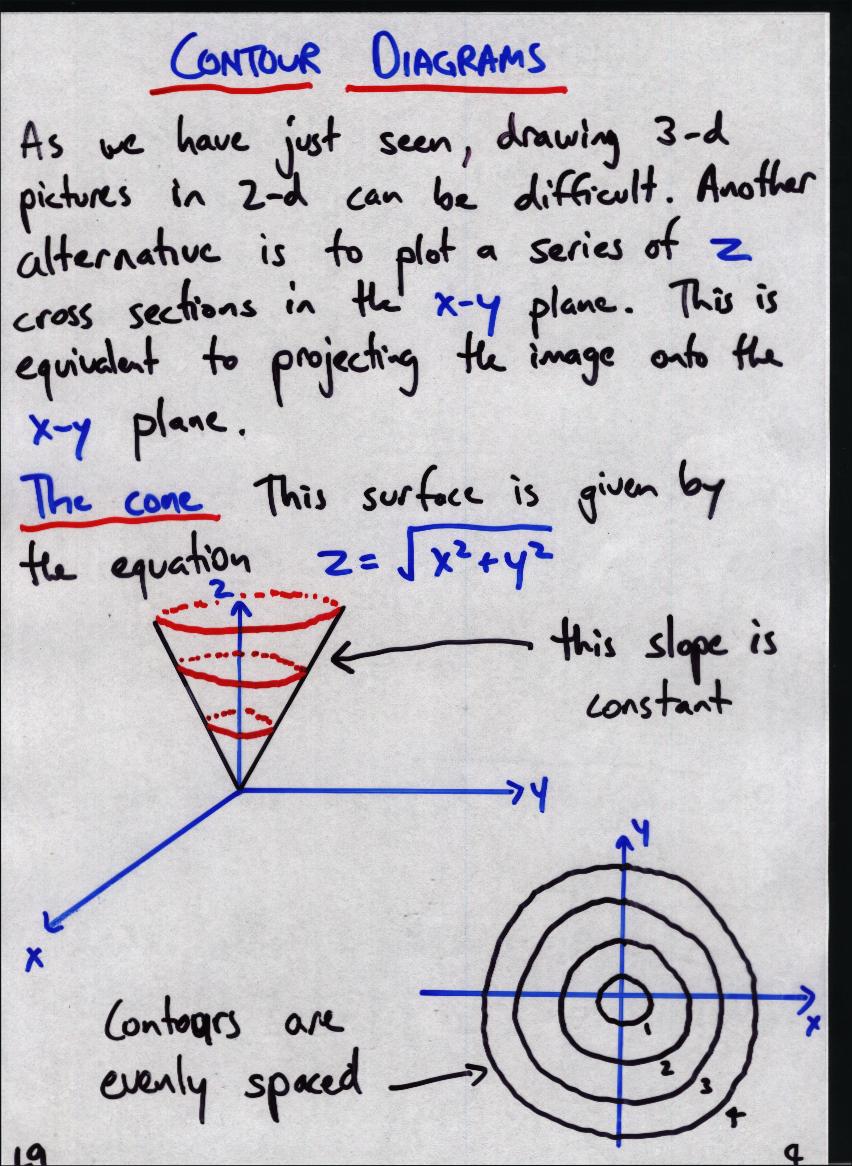 CONTOUR DIAGRAMS
As we have just seen, drawing 3-d
pictures in 2-d can be difficult. Another
alternative is to plot a series of z
cross sections in the x-y plane. This is
equivalent to projecting the image onto the
x-y plane.
The cone This surface is given by
the equation z = √x²+y²
z
this slope is
constant
y
x
y
x
1
2
3
4
Contours are
evenly spaced
19